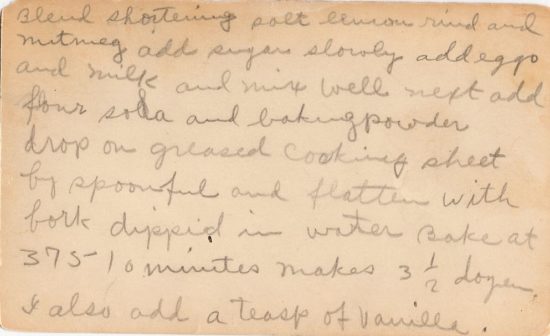 Blend shortening salt lemon rind and
nutmeg add sugar slowly add eggs
and milk and mix well next add
flour soda and baking powder
drop on greased cooking sheet
by spoonful and flatten with
fork dippid in water Bake at
375 - 10 minutes makes 3 1/2 dozen.
I also add a teasp of vanilla.